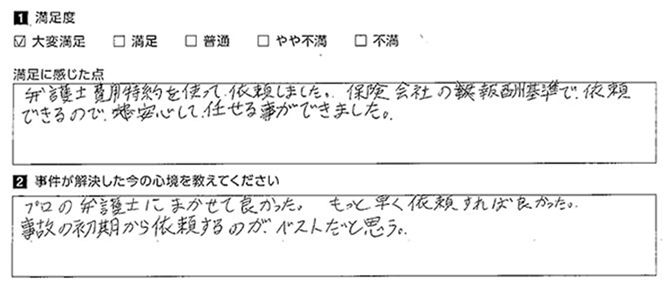 1 満足度
☑ 大変満足 □ 満足 □ 普通 □ やや不満 □ 不満
満足に感じた点
弁護士費用特約を使って依頼しました。保険会社の報酬基準で依頼
できるので、安心して任せる事ができました。
2 事件が解決した今の心境を教えてください
プロの弁護士にまかせて良かった。 もっと早く依頼すれば良かった。
事故の初期から依頼するのが、ベストだと思う。